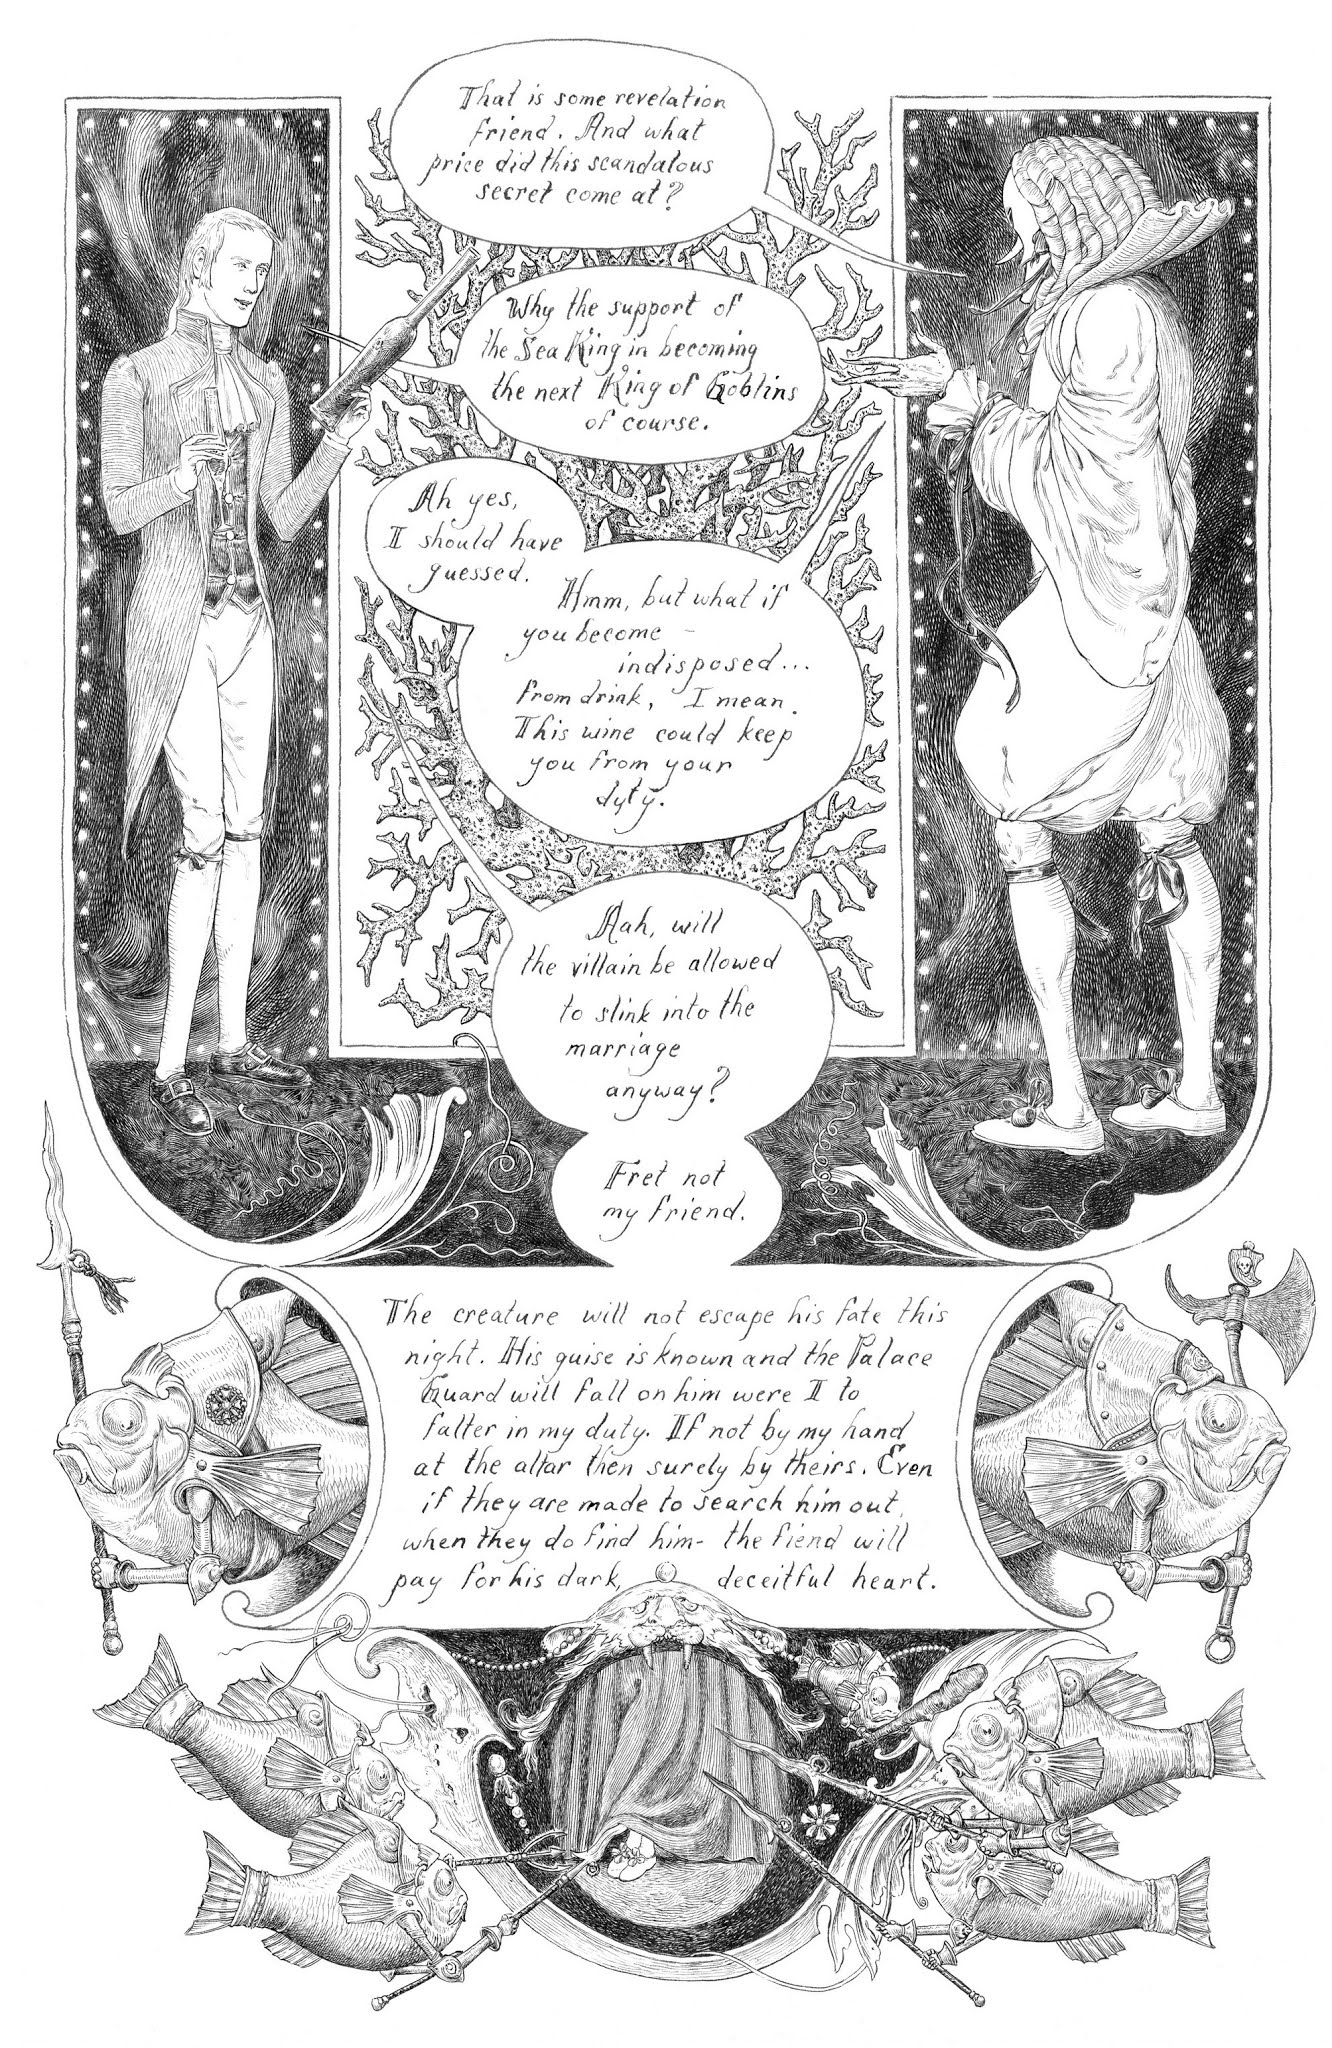 That is some revelation
friend. And what
price did this scandalous
secret come at?
Why the support of
the Sea King in becoming
the next King of Goblins
of course.
Ah yes,
I should have
guessed.
Hmm, but what if
you become -
indisposed...
from drink, I mean.
This wine could keep
you from your
duty.
Aah, will
the villain be allowed
to slink into the
marriage
anyway?
Fret not
my friend.
The creature will not escape his fate this
night. His guise is known and the Palace
Guard will fall on him were I to
falter in my duty. If not by my hand
at the altar then surely by theirs. Even
if they are made to search him out,
when they do find him- the fiend will
pay for his dark, deceitful heart.